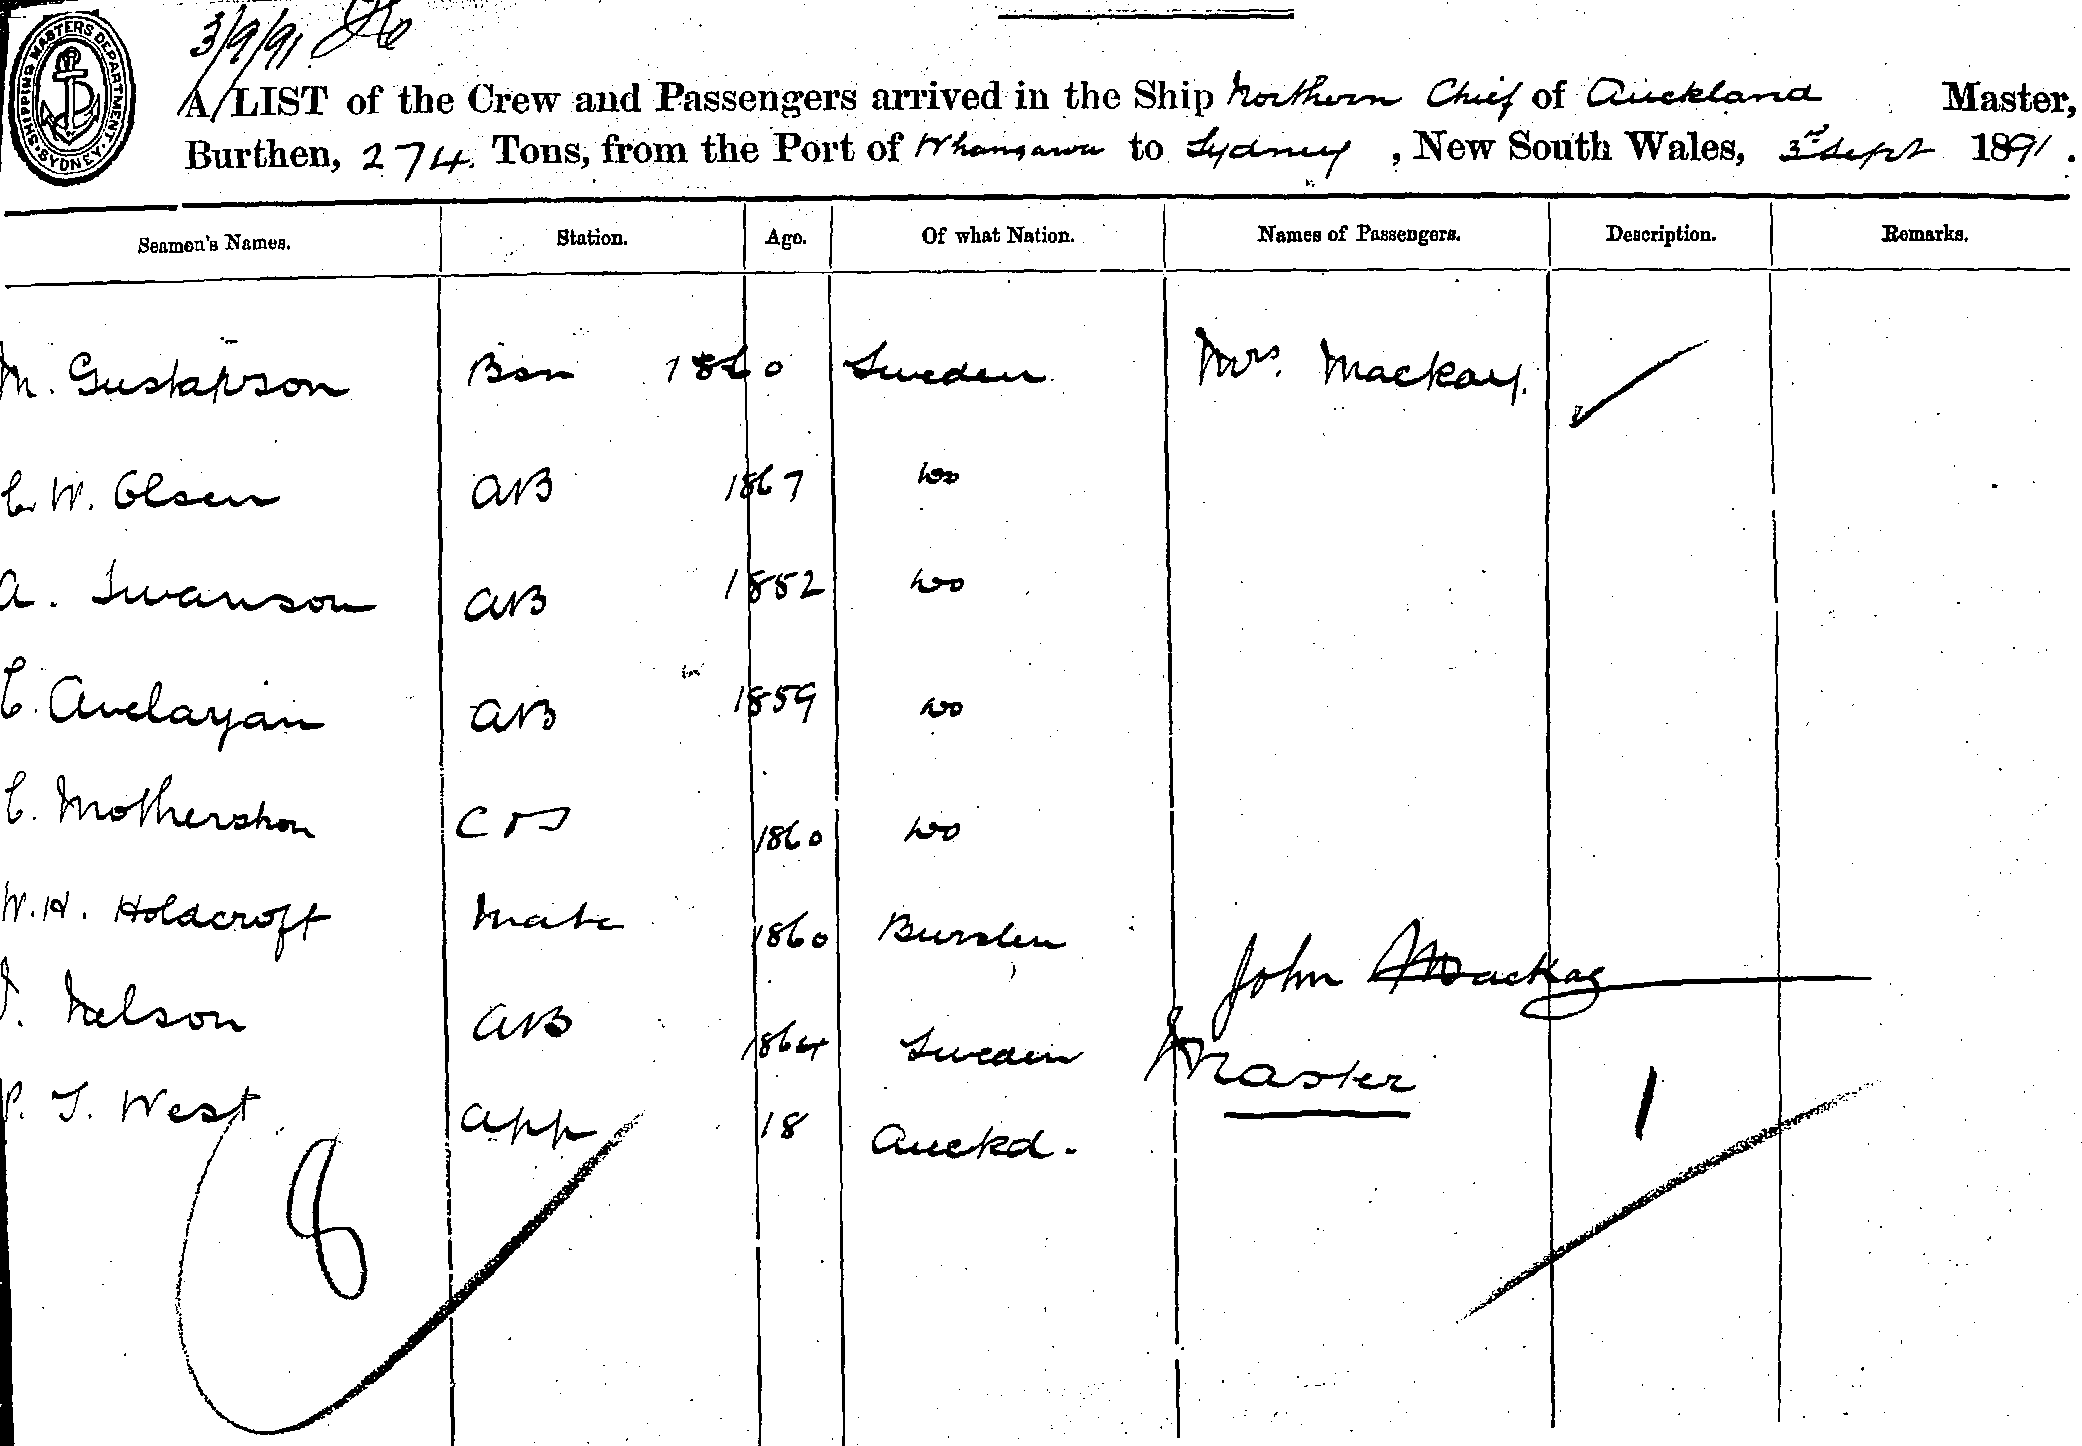 3/9/91
SHIPPING MASTERS DEPARTMENT. SYDNEY.
A LIST of the Crew and Passengers arrived in the Ship Northern Chief of Auckland Master,
Burthen, 274 Tons, from the Port of to Sydney, New South Wales, 3rd Sept 1891.
Seamen's Names. Station. Age. Of what Nation. Names of Passengers. Description. Remarks.
M. Gustafson Bsn 1860 Sweden Mrs. Mackay.
C. W. Olsen AB 1867 do
A. Swanson AB 1852 do
C. AB 1859 do
C. Mothershon 1860 do
W. H. Holdcroft Mate 1860 Burslem
John Mackay
Nelson AB 1864 Sweden
Master
West App 18 Auckd. 1
8